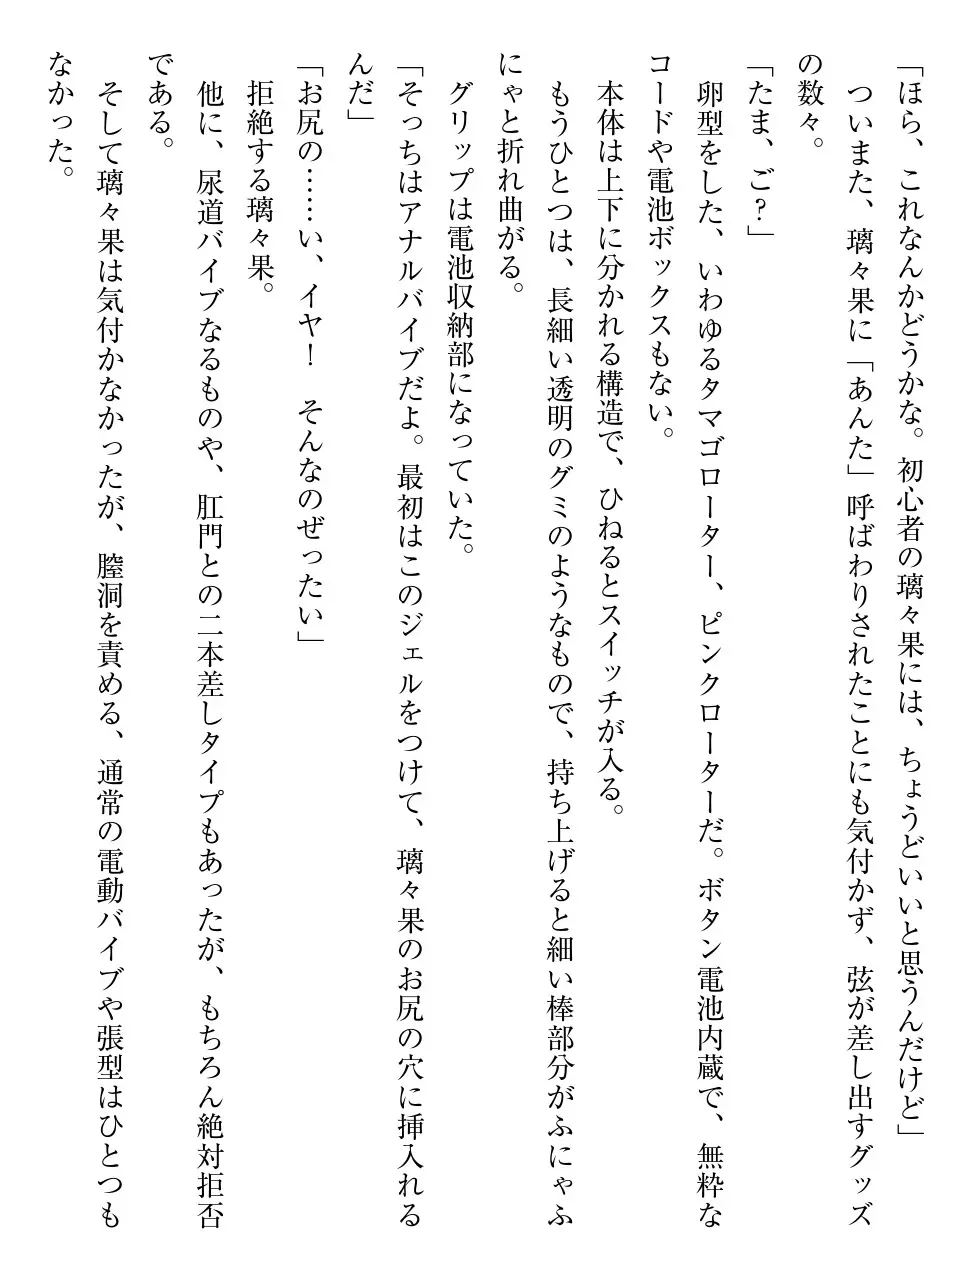 「ほら、これなんかどうかな。初心者の璃々果には、ちょうどいいと思うんだけど」
ついまた、璃々果に「あんた」呼ばわりされたことにも気付かず、弦が差し出すグッズ
の数々。
「たま、ご?」
卵型をした、いわゆるタマゴローター、ピンクローターだ。ボタン電池内蔵で、無粋な
コードや電池ボックスもない。
本体は上下に分かれる構造で、ひねるとスイッチが入る。
もうひとつは、長細い透明のグミのようなもので、持ち上げると細い棒部分がふにゃふ
にゃと折れ曲がる。
グリップは電池収納部になっていた。
「そっちはアナルバイブだよ。最初はこのジェルをつけて、璃々果のお尻の穴に挿入れる
んだ」
「お尻の……い、イヤ!　そんなのぜったい」
拒絶する璃々果。
他に、尿道バイブなるものや、肛門との二本差しタイプもあったが、もちろん絶対拒否
である。
そして璃々果は気付かなかったが、膣洞を責める、通常の電動バイブや張型はひとつも
なかった。